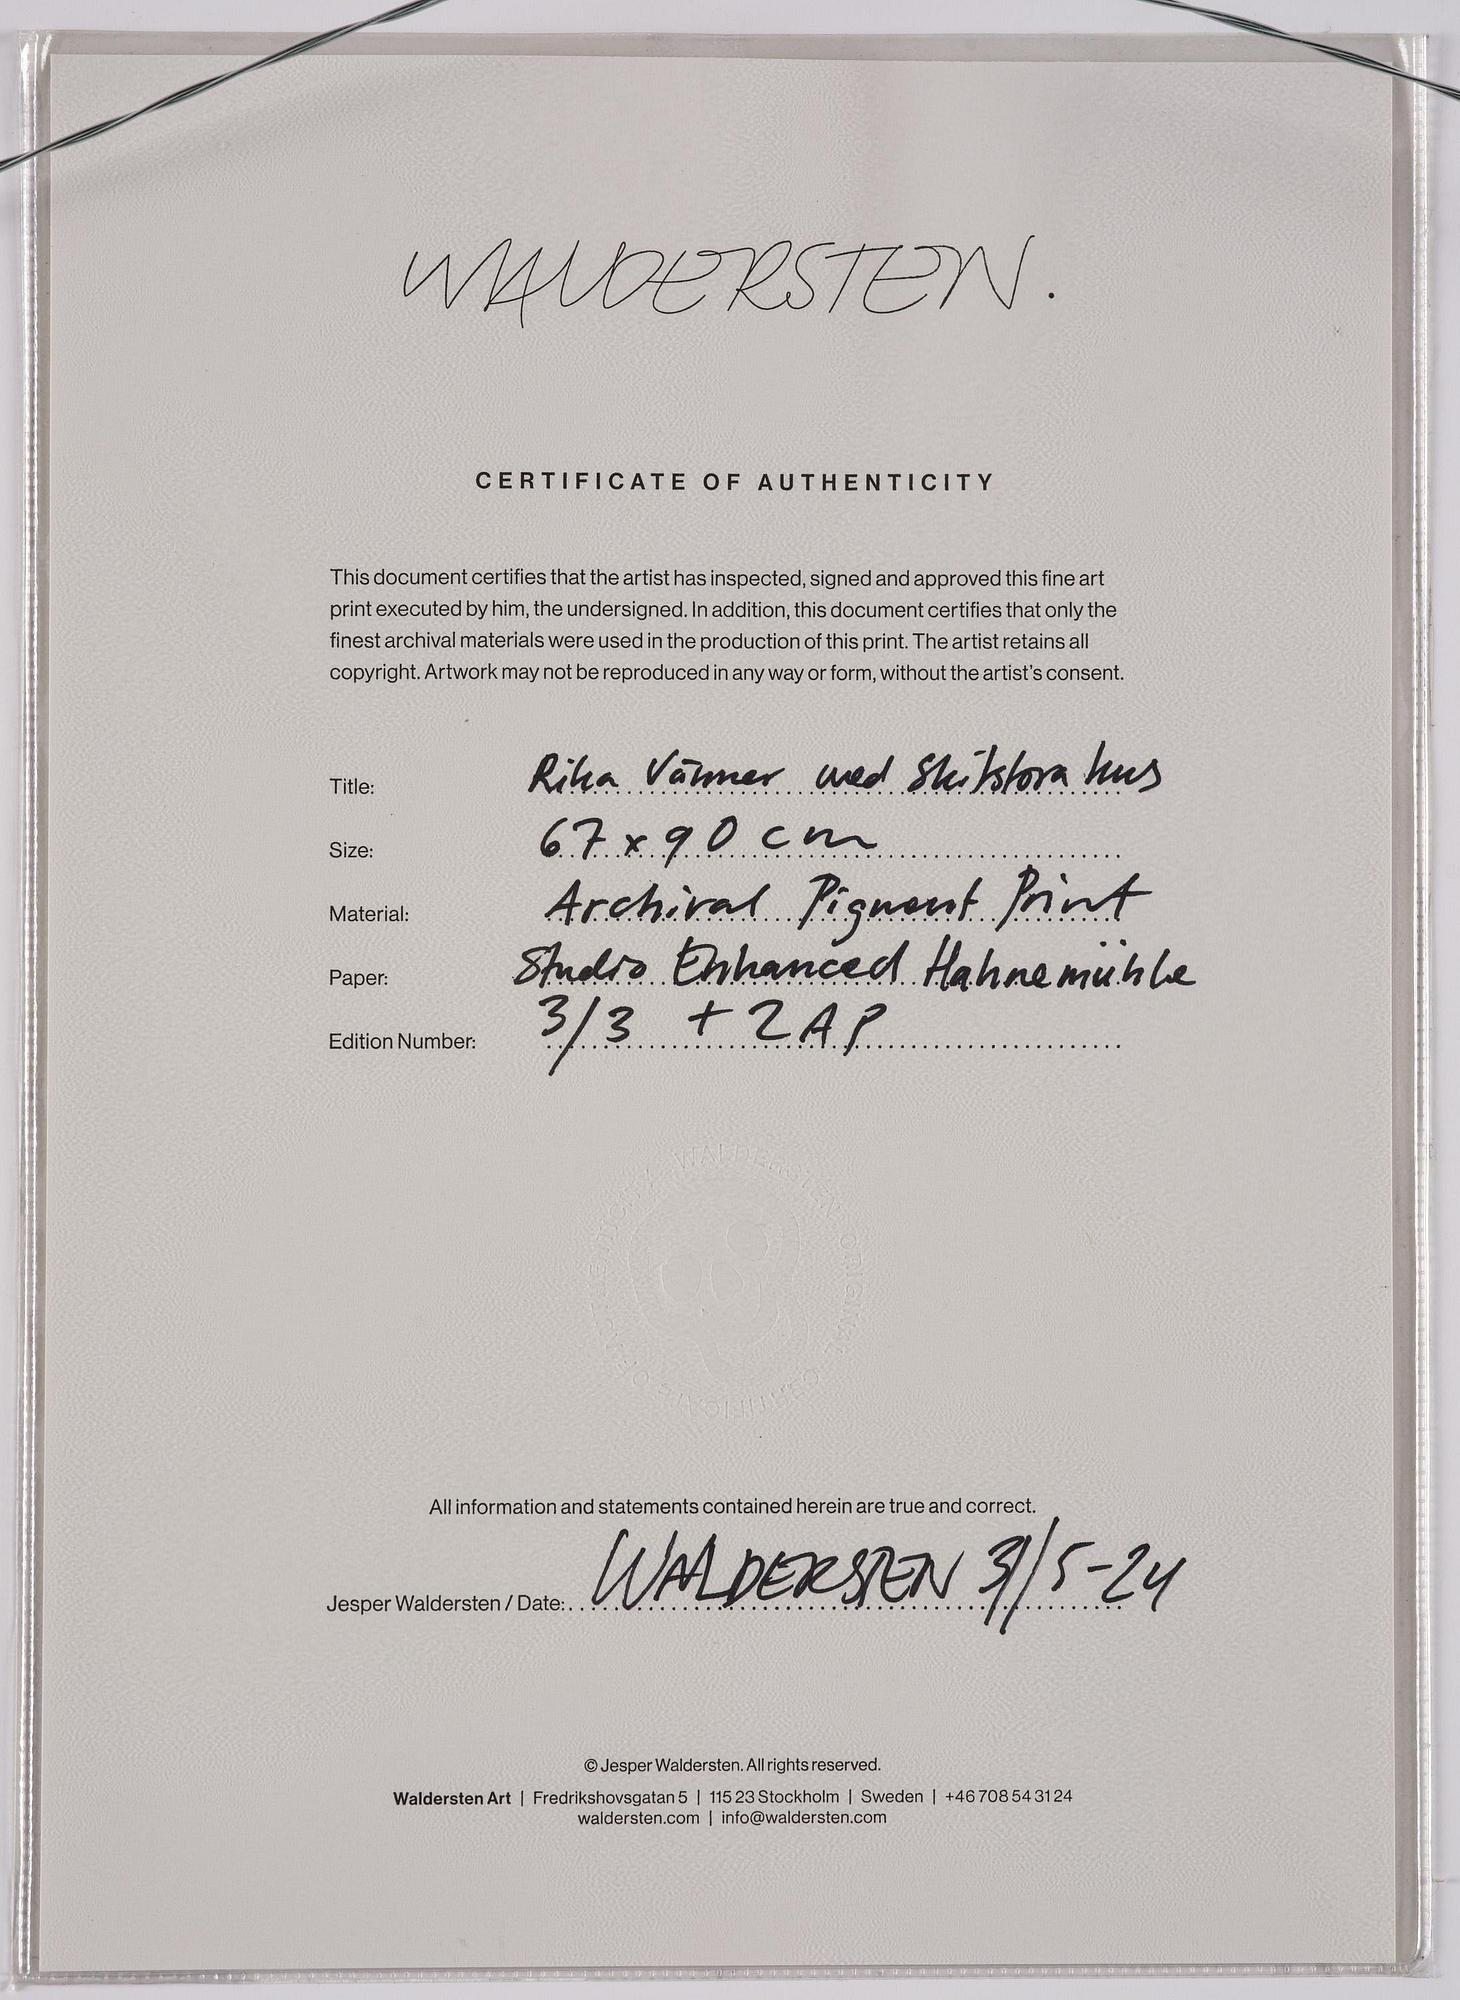 WALDERSTEN.
CERTIFICATE OF AUTHENTICITY
This document certifies that the artist has inspected, signed and approved this fine art
print executed by him, the undersigned. In addition, this document certifies that only the
finest archival materials were used in the production of this print. The artist retains all
copyright. Artwork may not be reproduced in any way or form, without the artist's consent.
Title: Rika Vänner med Skitstora hus
Size: 67 x 90 cm
Material: Archival Pigment Print
Paper: Studio Enhanced Hahnemühle
Edition Number: 3/3 + 2 AP
WALDERSTEN ORIGINAL CERTIFICATE OF AUTHENTICITY
All information and statements contained herein are true and correct.
Jesper Waldersten / Date: WALDERSTEN 31/5-24
© Jesper Waldersten. All rights reserved.
Waldersten Art | Fredrikshovsgatan 5 | 115 23 Stockholm | Sweden | +46 708 54 31 24
waldersten.com | info@waldersten.com